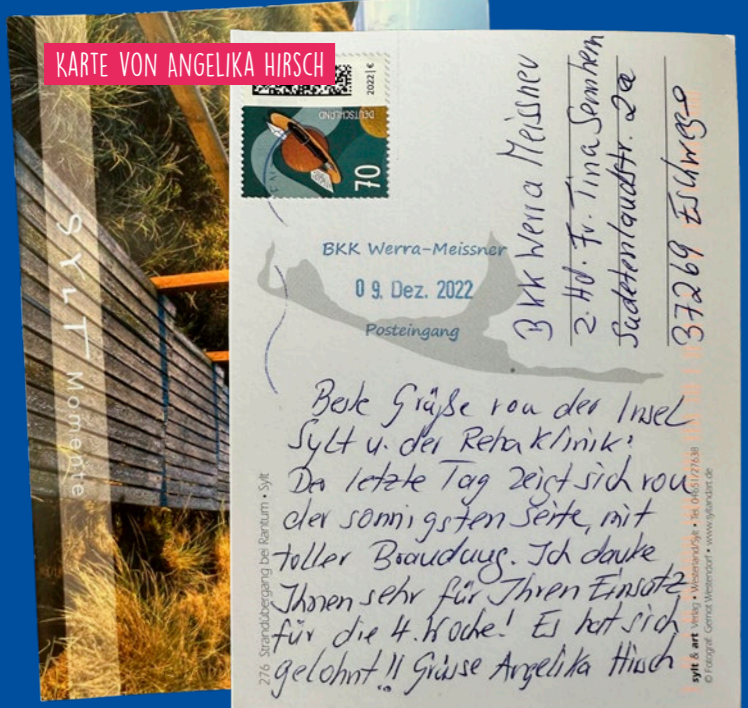 KARTE VON ANGELIKA HIRSCH
SYLT Momente
2022 | €
DEUTSCHLAND
70
BKK Werra Meissner
z. Hd. Fr. Tina Sennhenn
Sudetenlandstr. 2a
37269 Eschwege
BKK Werra-Meissner
09. Dez. 2022
Posteingang
Beste Grüße von der Insel
Sylt u. der Rehaklinik!
Der letzte Tag zeigt sich von
der sonnigsten Seite, mit
toller Brandung. Ich danke
Ihnen sehr für Ihren Einsatz
für die 4. Woche! Es hat sich
gelohnt!! Grüsse Angelika Hirsch
276 Strandübergang bei Rantum • Sylt
sylt & art Verlag • Westerland/Sylt • Tel. 04651/27638
© Fotograf Gernot Westendorf • www.syltandart.de